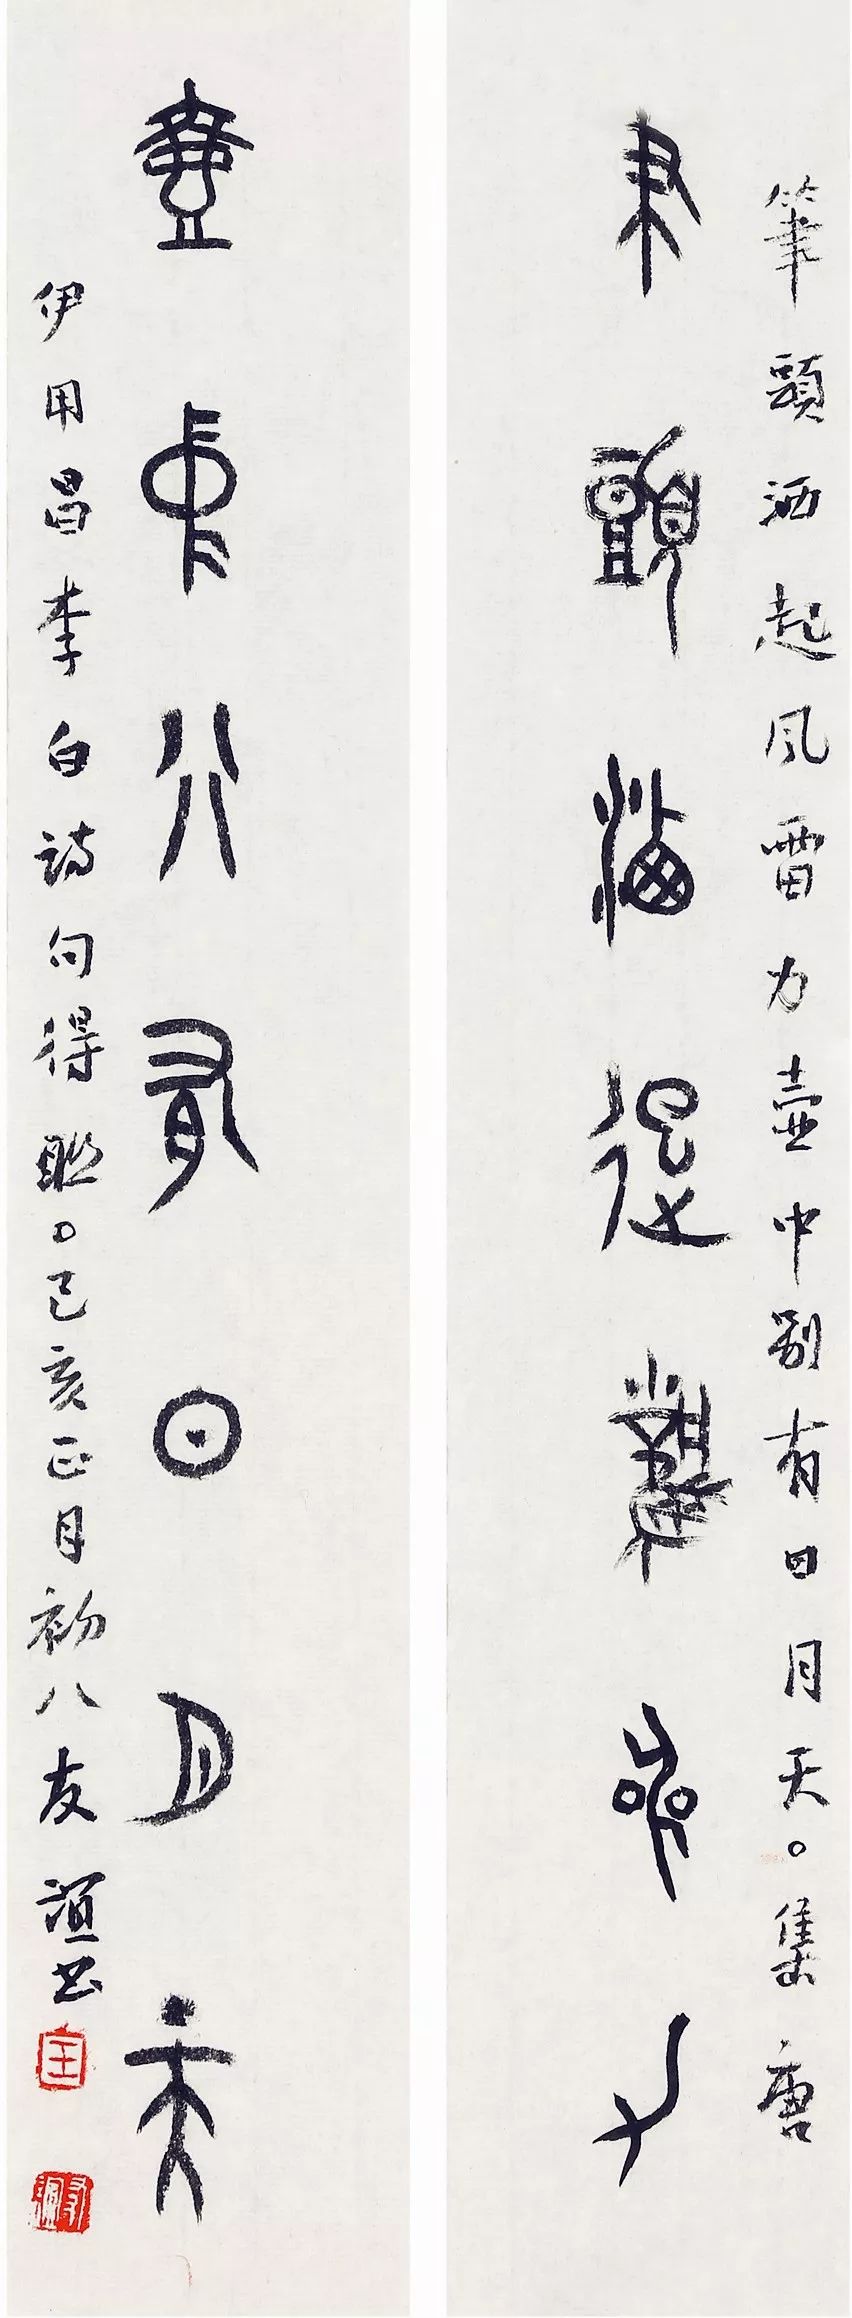 筆頭洒起風雷力壺中别有日月天。集唐
筆頭洒起風雷力
壺中别有日月天
伊用昌李白詩句得聯。己亥正月初八友誼書